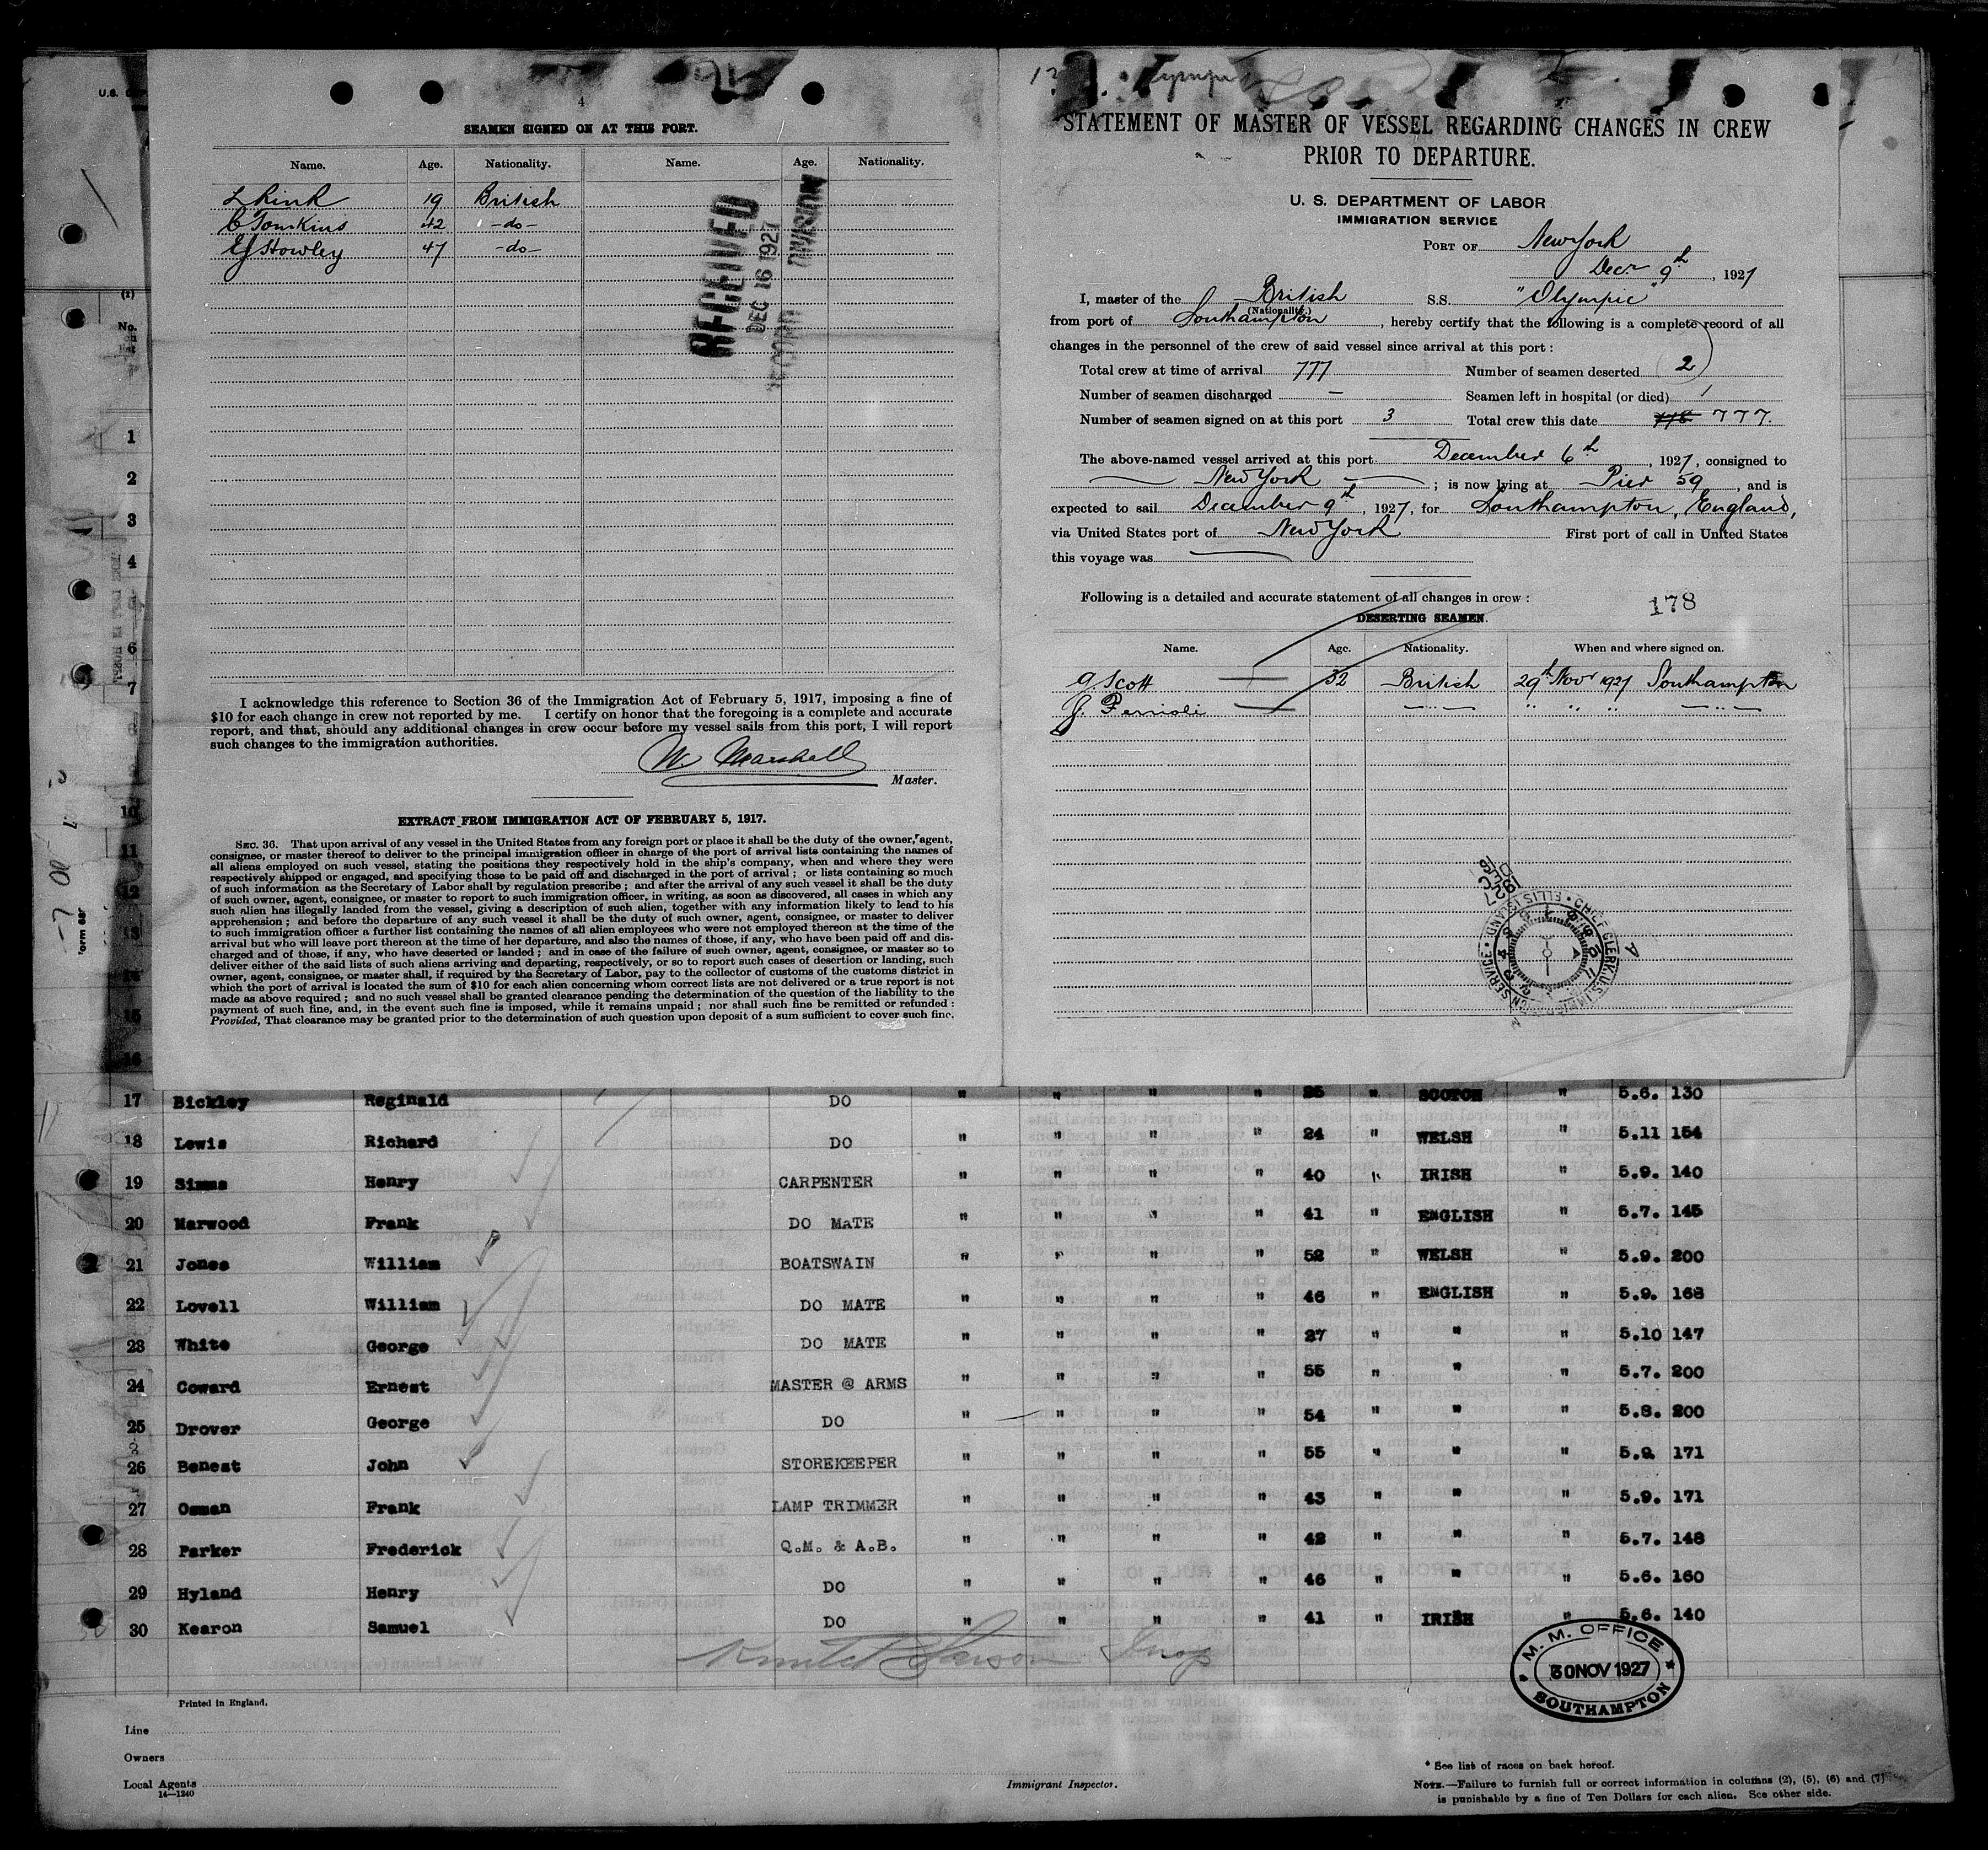 4
SEAMEN SIGNED ON AT THIS PORT.
Name. Age. Nationality. Name. Age. Nationality.
L Rink 19 British
C Tomkins 42 -do-
EJ Howley 47 -do-
RECEIVED
DEC 16 1927
RECORD DIVISION
I acknowledge this reference to Section 36 of the Immigration Act of February 5, 1917, imposing a fine of
$10 for each change in crew not reported by me. I certify on honor that the foregoing is a complete and accurate
report, and that, should any additional changes in crew occur before my vessel sails from this port, I will report
such changes to the immigration authorities.
W. Marshall
Master.
EXTRACT FROM IMMIGRATION ACT OF FEBRUARY 5, 1917.
SEC. 36. That upon arrival of any vessel in the United States from any foreign port or place it shall be the duty of the owner, agent,
consignee, or master thereof to deliver to the principal immigration officer in charge of the port of arrival lists containing the names of
all aliens employed on such vessel, stating the positions they respectively hold in the ship's company, when and where they were
respectively shipped or engaged, and specifying those to be paid off and discharged in the port of arrival; or lists containing so much
of such information as the Secretary of Labor shall by regulation prescribe; and after the arrival of any such vessel it shall be the duty
of such owner, agent, consignee, or master to report to such immigration officer, in writing, as soon as discovered, all cases in which any
such alien has illegally landed from the vessel, giving a description of such alien, together with any information likely to lead to his
apprehension; and before the departure of any such vessel it shall be the duty of such owner, agent, consignee, or master to deliver
to such immigration officer a further list containing the names of all alien employees who were not employed thereon at the time of the
arrival but who will leave port thereon at the time of her departure, and also the names of those, if any, who have been paid off and dis-
charged and of those, if any, who have deserted or landed; and in case of the failure of such owner, agent, consignee, or master so to
deliver either of the said lists of such aliens arriving and departing, respectively, or so to report such cases of desertion or landing, such
owner, agent, consignee, or master shall, if required by the Secretary of Labor, pay to the collector of customs of the customs district in
which the port of arrival is located the sum of $10 for each alien concerning whom correct lists are not delivered or a true report is not
made as above required; and no such vessel shall be granted clearance pending the determination of the question of the liability to the
payment of such fine, and, in the event such fine is imposed, while it remains unpaid; nor shall such fine be remitted or refunded:
Provided, That clearance may be granted prior to the determination of such question upon deposit of a sum sufficient to cover such fine.
STATEMENT OF MASTER OF VESSEL REGARDING CHANGES IN CREW
PRIOR TO DEPARTURE.
U. S. DEPARTMENT OF LABOR
IMMIGRATION SERVICE
PORT OF New York
Decr 9th, 1927
I, master of the British S.S. "Olympic"
(Nationality.)
from port of Southampton, hereby certify that the following is a complete record of all
changes in the personnel of the crew of said vessel since arrival at this port:
Total crew at time of arrival 777 Number of seamen deserted 2
Number of seamen discharged — Seamen left in hospital (or died) 1
Number of seamen signed on at this port 3 Total crew this date 777.
The above-named vessel arrived at this port December 6th, 1927, consigned to
New York; is now lying at Pier 59, and is
expected to sail December 9th, 1927, for Southampton, England,
via United States port of New York First port of call in United States
this voyage was
Following is a detailed and accurate statement of all changes in crew:
178
DESERTING SEAMEN.
Name. Age. Nationality. When and where signed on.
G. Scott 32 British 29th Nov 1927 Southampton
J. " " "
CHIEF CLERK U.S. IMMIGRATION SERVICE ELLIS ISLAND
17 Bickley Reginald DO " " " " 25 " SCOTCH " 5.6. 130
18 Lewis Richard DO " " " " 24 " WELSH " 5.11 154
19 Simms Henry CARPENTER " " " " 40 " IRISH " 5.9. 140
20 Marwood Frank DO MATE " " " " 41 " ENGLISH " 5.7. 145
21 Jones William BOATSWAIN " " " " 52 " WELSH " 5.9. 200
22 Lovell William DO MATE " " " " 46 " ENGLISH " 5.9. 168
23 White George DO MATE " " " " 27 " " " 5.10 147
24 Coward Ernest MASTER @ ARMS " " " " 55 " " " 5.7. 200
25 Drover George DO " " " " 54 " " " 5.8. 200
26 Benest John STOREKEEPER " " " " 55 " " " 5.9. 171
27 Osman Frank LAMP TRIMMER " " " " 43 " " " 5.9. 171
28 Parker Frederick Q.M. & A.B. " " " " 42 " " " 5.7. 148
29 Hyland Henry DO " " " " 46 " " " 5.6. 160
30 Kearon Samuel DO " " " " 41 " IRISH " 5.6. 140
M. M. OFFICE
30 NOV 1927
SOUTHAMPTON
Printed in England.
Line
Owners
Local Agents
14—1240
Immigrant Inspector.
* See list of races on back hereof.
NOTE.—Failure to furnish full or correct information in columns (2), (5), (6) and (7)
is punishable by a fine of Ten Dollars for each alien. See other side.